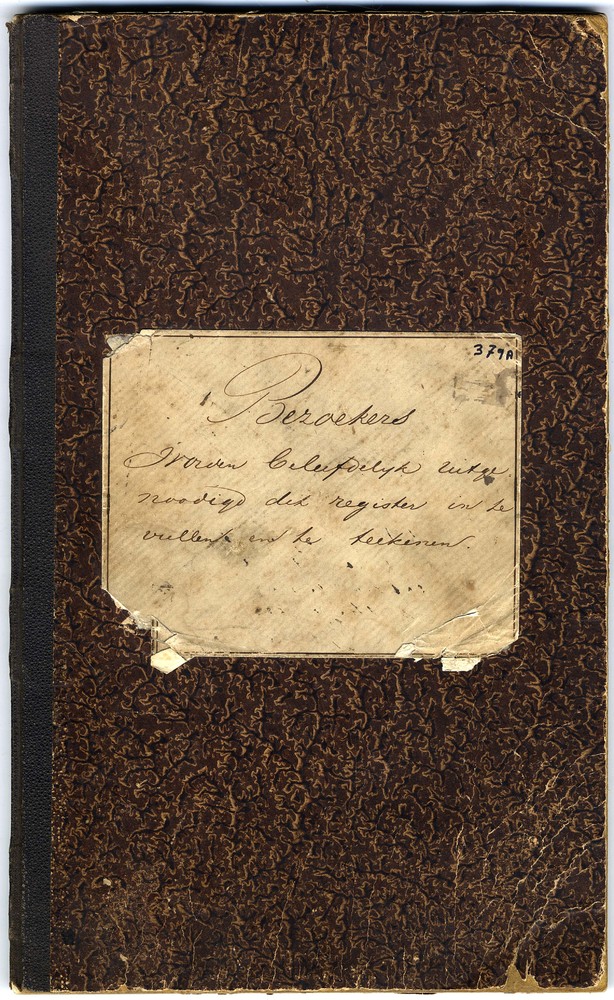 379A
Bezoekers
Worden beleefdelyk uitge
noodigd dit register in te
vullen en te teekenen.